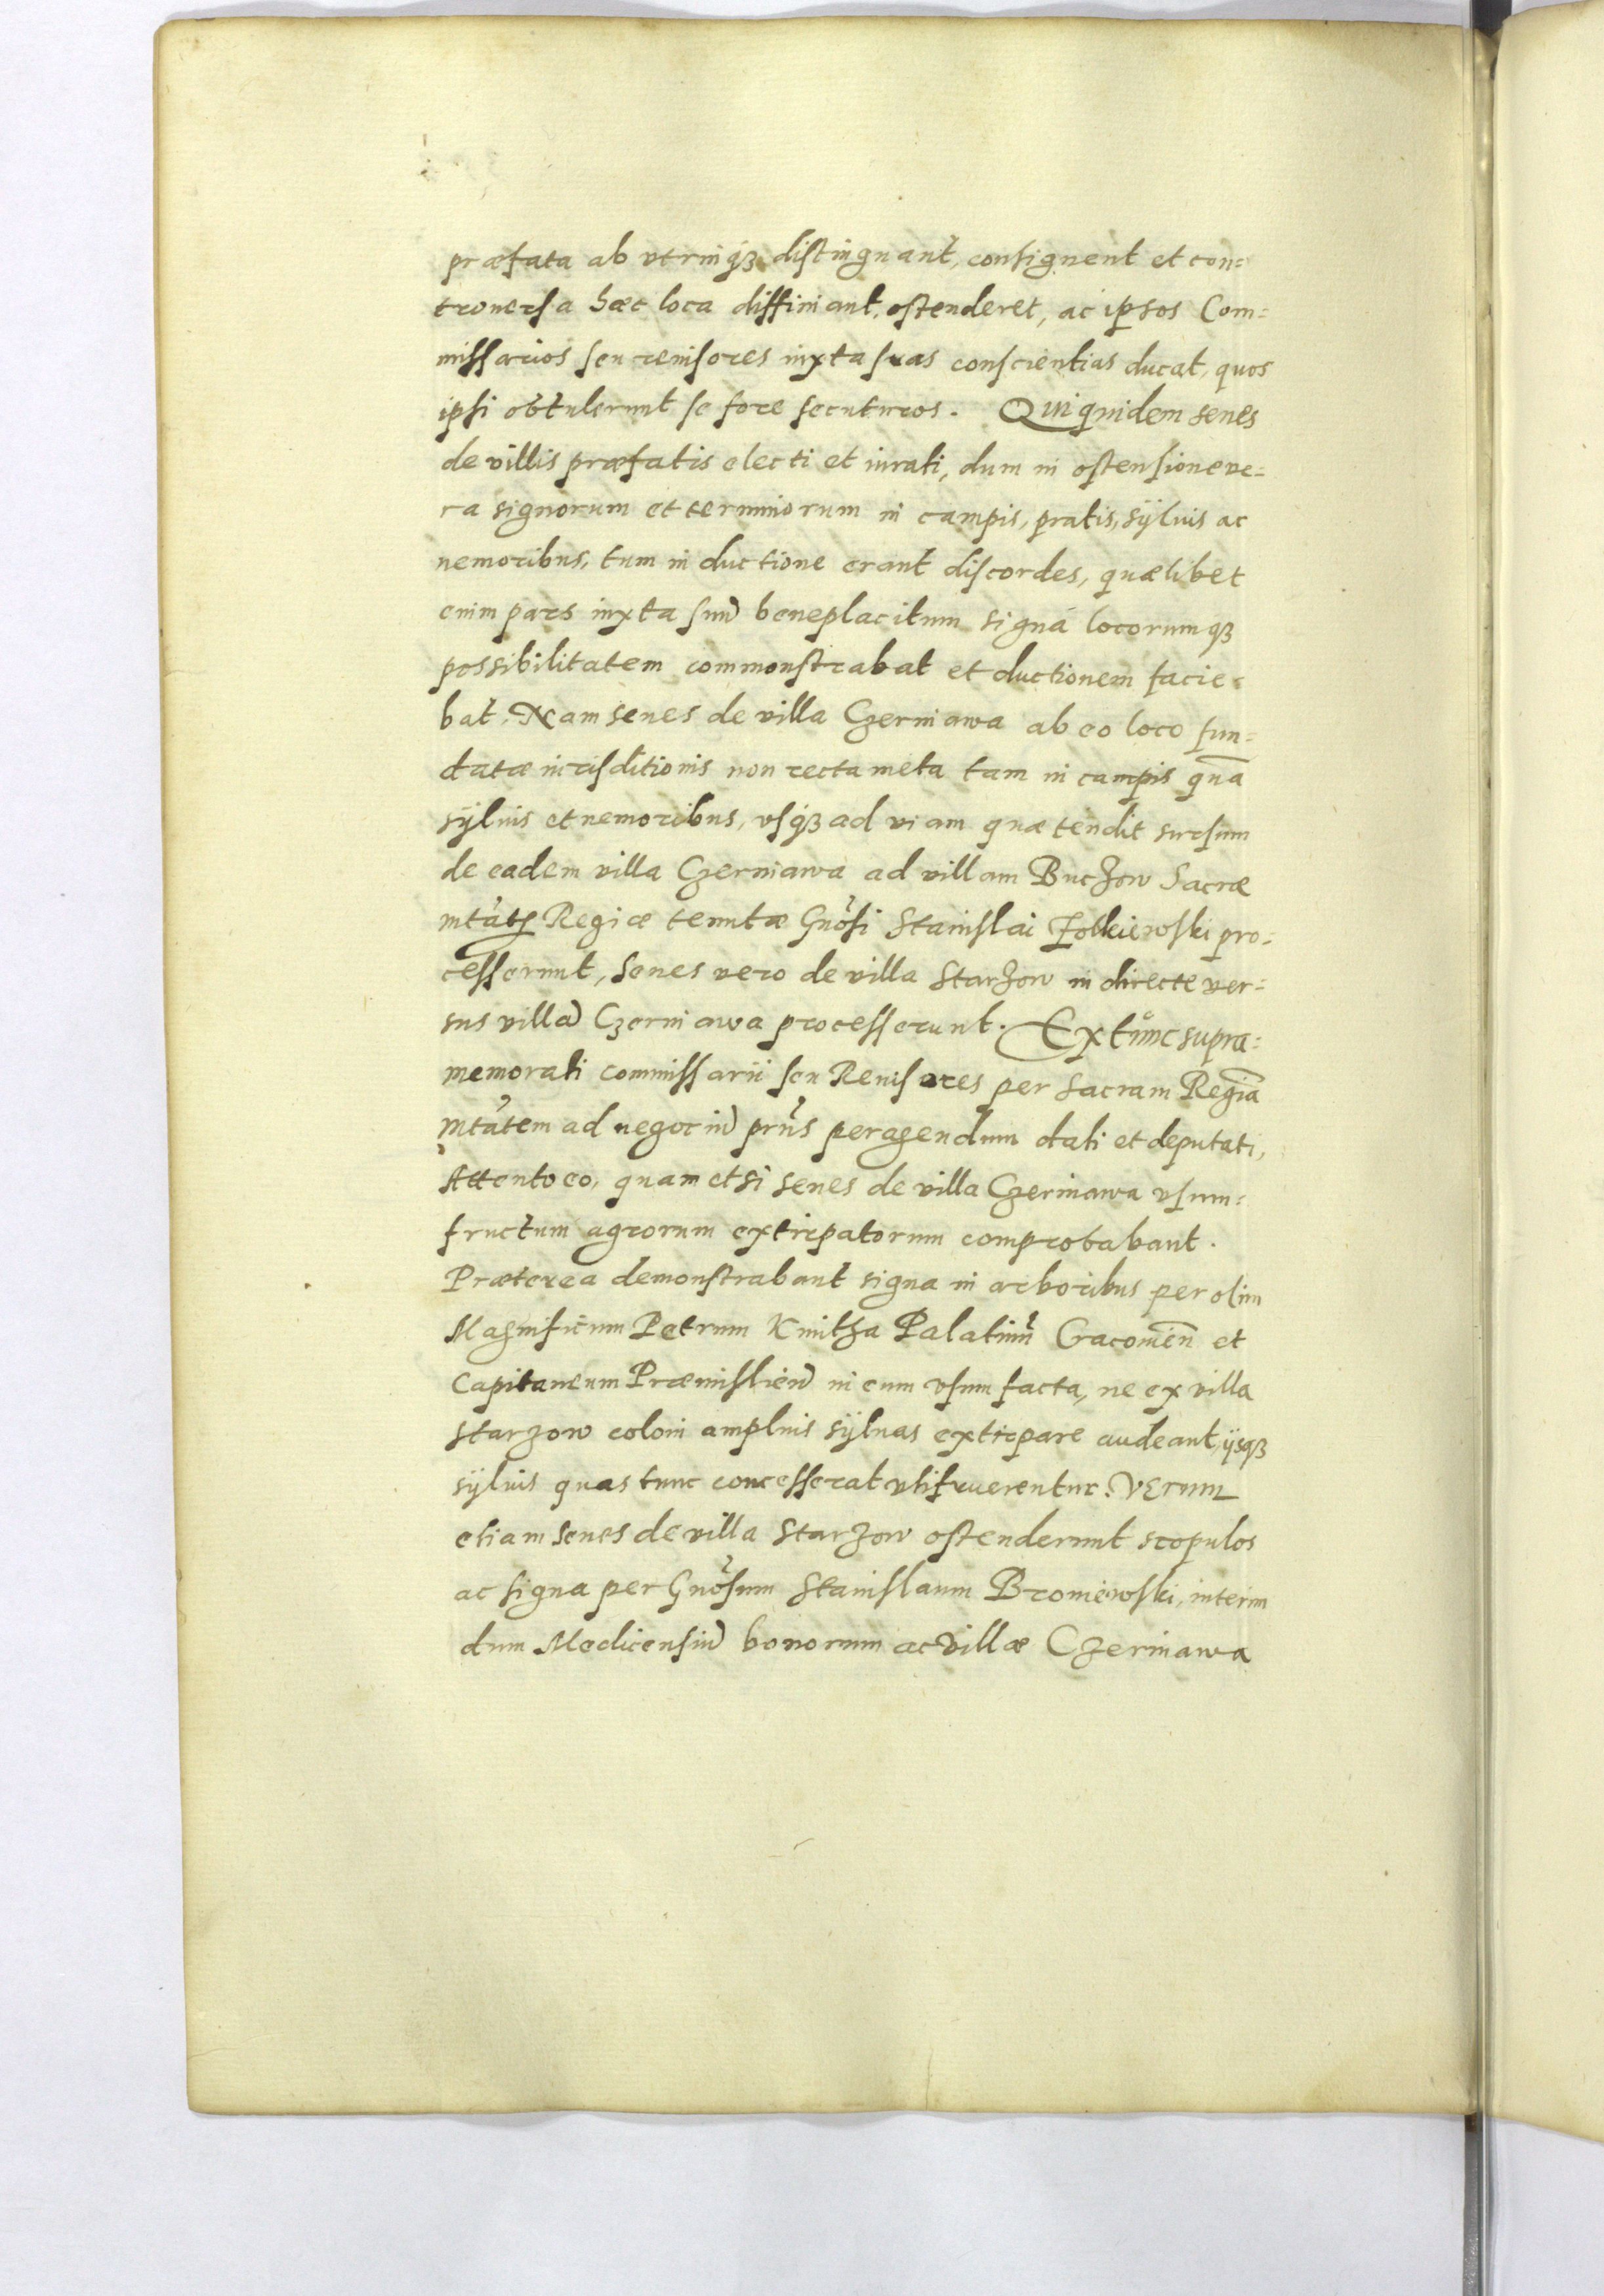 præfata ab vtrinq3 distinguant, consignent et con=
trouersa hæc loca diffiniant, ostenderet, ac ipsos Com=
missarios seu reuisores iuxta suas conscientias ducat, quos
ipsi obtulerunt se fore secuturos. Qui quidem senes
de villis præfatis electi et iurati, dum in ostensione ve=
ra signorum et terminorum in campis, pratis, sÿluis ac
nemoribus, tum in ductione erant discordes, quælibet
enim pars iuxta suũ beneplacitum signa locorumq3
possibilitatem commonstrabat et ductionem facie=
bat. Nam senes de villa Czerniawa ab eo loco fun=
datæ iurisditionis non recta meta tam in campis quã
sÿluis et nemoribus, vsq3 ad viam quæ tendit sursum
de eadem villa Czerniawa ad villam Buczow Sacræ
mtatis Regiæ tenutæ Gnosi Stanislai Zolkiewski pro=
cesserunt, senes vero de villa Starzow in directe ver=
sus villã Czerniawa processerunt. Extunc supra=
memorati commissarii seu Reuisores per Sacram Regiã
mtatem ad negociũ prns peragendum dati et deputati,
Attento eo, quam etsi senes de villa Czerniawa vsum=
fructum agrorum extirpatorum comprobabant.
Præterea demonstrabant signa in arboribus per olim
Magnificum Petrum Kmitha Palatinũ Cracouien̄ et
Capitaneum Præmislien̄ in eum vsum facta, ne ex villa
Starzow coloni amplius sÿluas extirpare audeant, ijsq3
sÿluis quas tunc concesserat vtifruerentur. Verum
etiam senes de villa Starzow ostenderunt scopulos
ac signa per Gnosum Stanislaum Broniewski, interim
dum Medicensiũ bonorum ac villæ Czerniawa